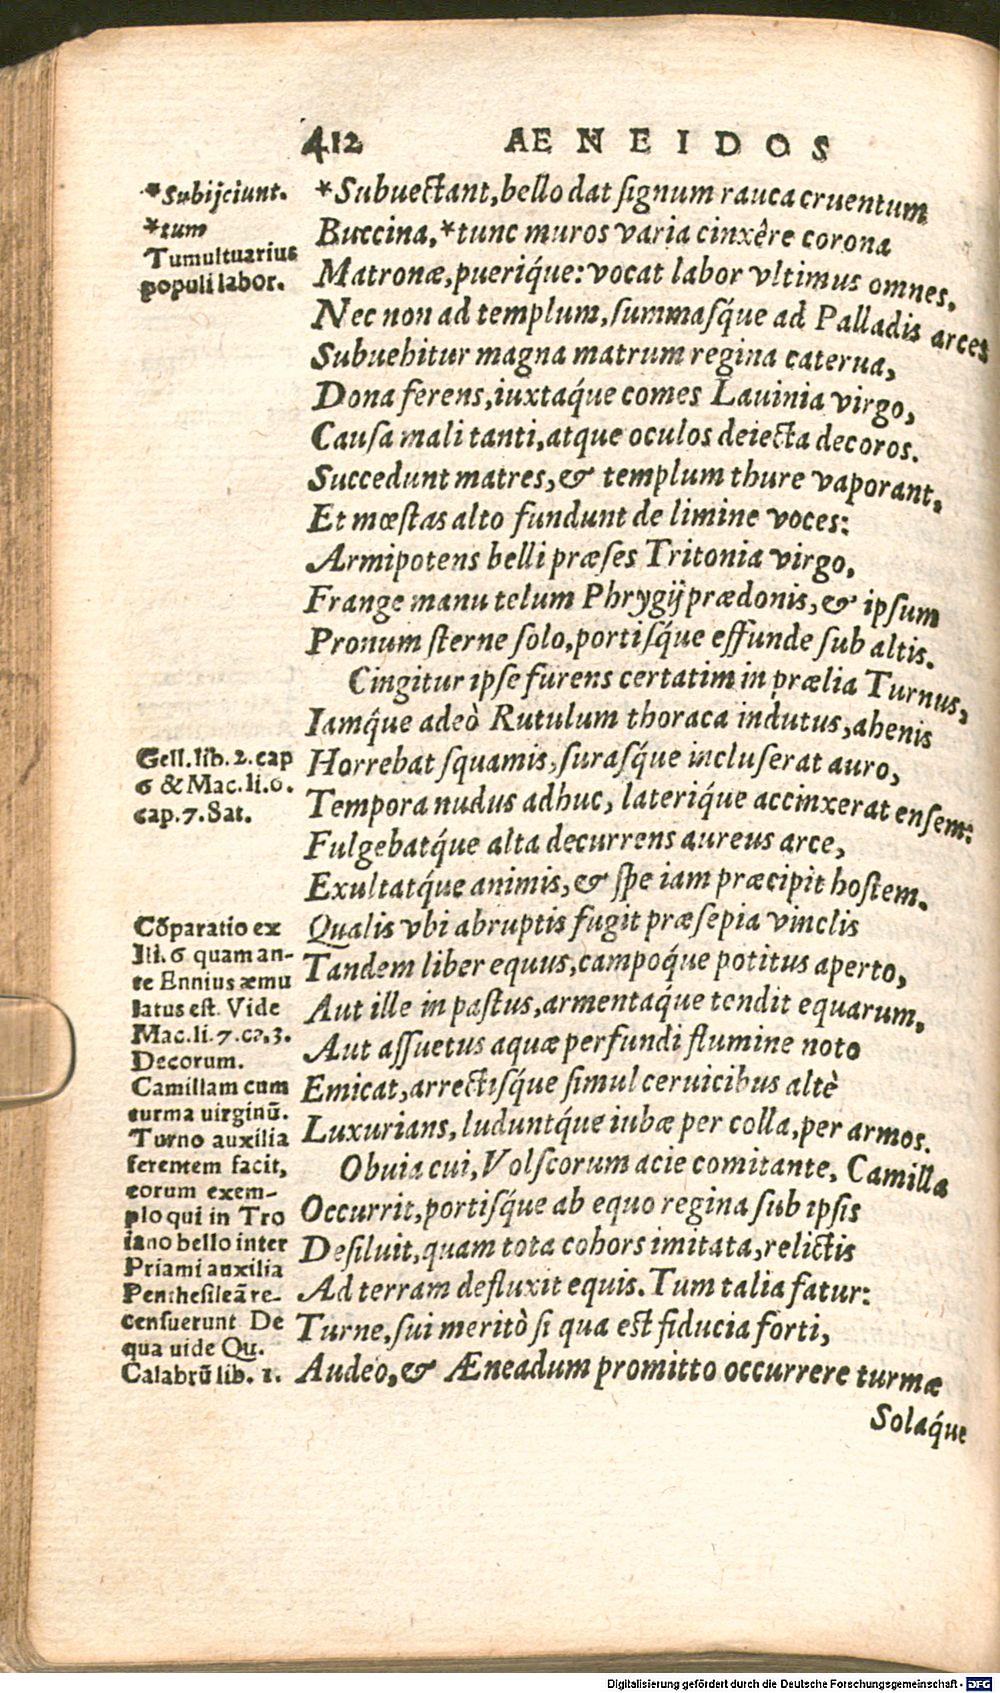 412 AENEIDOS
*Subijciunt.
*tum
Tumultuarius
populi labor.
*Subuectant, bello dat ſignum rauca cruentum
Buccina, *tunc muros varia cinxêre corona
Matronæ, pueriq́ue: vocat labor vltimus omnes.
Nec non ad templum, ſummaſq́ue ad Palladis arces
Subuehitur magna matrum regina caterua,
Dona ferens, iuxtaq́ue comes Lauinia virgo,
Cauſa mali tanti, atque oculos deiecta decoros.
Succedunt matres, & templum thure vaporant,
Et mœſtas alto fundunt de limine voces:
Armipotens belli præſes Tritonia virgo,
Frange manu telum Phrygij prædonis, & ipſum
Pronum ſterne ſolo, portiſq́ue effunde ſub altis.
Cingitur ipſe furens certatim in prælia Turnus,
Iamq́ue adeò Rutulum thoraca indutus, ahenis
Gell. lib. 2. cap
6 & Mac. li. 6.
cap. 7. Sat.
Horrebat ſquamis, ſuraſq́ue incluſerat auro,
Tempora nudus adhuc, lateriq́ue accinxerat enſem:
Fulgebatq́ue alta decurrens aureus arce,
Exultatq́ue animis, & ſpe iam præcipit hoſtem.
Cõparatio ex
Ili. 6 quam an-
te Ennius æmu
latus eſt. Vide
Mac. li. 7. ca. 3.
Decorum.
Camillam cum
turma uirginũ.
Turno auxilia
ferentem facit,
eorum exem-
plo qui in Tro
iano bello inter
Priami auxilia
Pentheſileã re-
cenſuerunt De
qua uide Qu.
Calabrũ lib. 1.
Qualis vbi abruptis fugit præſepia vinclis
Tandem liber equus, campoq́ue potitus aperto,
Aut ille in paſtus, armentaq́ue tendit equarum,
Aut aſſuetus aquæ perfundi flumine noto
Emicat, arrectiſq́ue ſimul ceruicibus altè
Luxurians, luduntq́ue iubæ per colla, per armos.
Obuia cui, Volſcorum acie comitante, Camilla
Occurrit, portiſq́ue ab equo regina ſub ipſis
Deſiluit, quam tota cohors imitata, relictis
Ad terram defluxit equis. Tum talia fatur:
Turne, ſui meritò ſi qua eſt fiducia forti,
Audeo, & Æneadum promitto occurrere turmæ
Solaq́ue
Digitalisierung gefördert durch die Deutsche Forschungsgemeinschaft - DFG